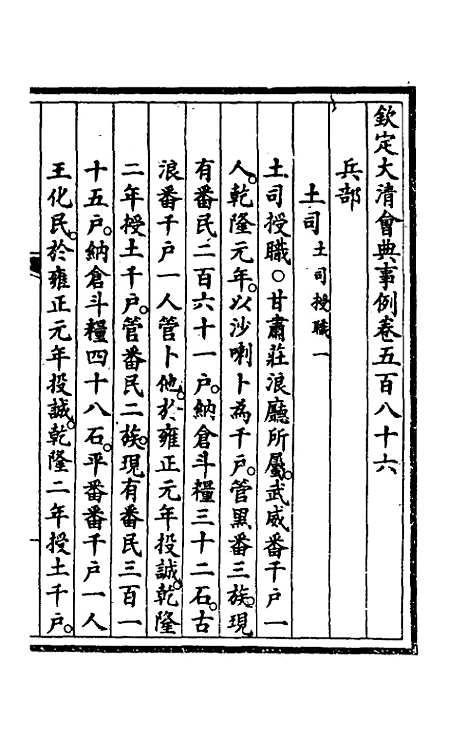 欽定大清會典事例卷五百八十六
兵部
土司土司授職一
土司授職○甘肅莊浪廳所屬。武威番千戶一
人。乾隆元年。以沙喇卜為千戶。管黑番三族。現
有番民二百六十一戶。納倉斗糧三十二石。古
浪番千戶一人管卜他。於雍正元年投誠。乾隆
二年授土千戶。管番民二族。現有番民三百一
十五戶。納倉斗糧四十八石。平番番千戶一人
王化民。於雍正元年投誠。乾隆二年授土千戶。